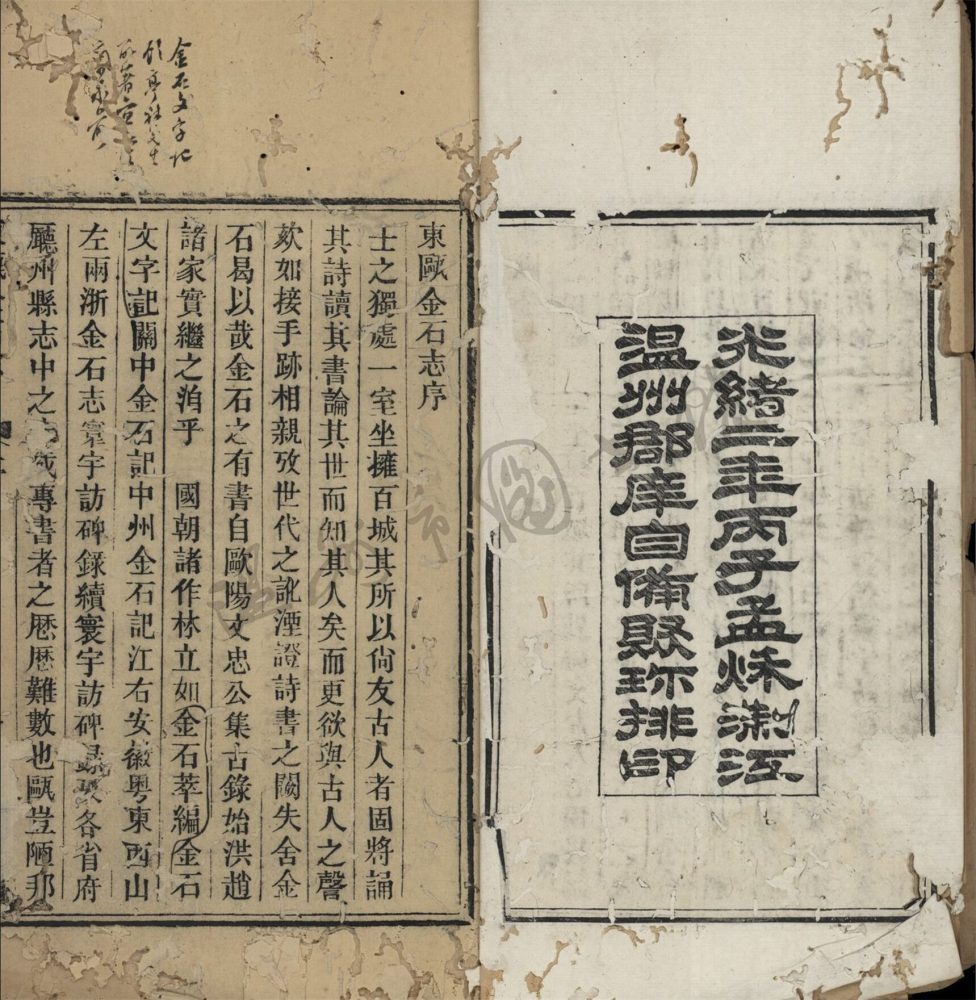 光緒二年丙子孟秌淛江
温州郡庠自備聚珎排印
金石文字記
東甌金石志序
士之獨處一室坐擁百城其所以尙友古人者固將誦
其詩讀其書論其世而知其人矣而更欲與古人之謦
欬如接手跡相親攷世代之訛湮證詩書之闕失舍金
石曷以哉金石之有書自歐陽文忠公集古錄始洪趙
諸家實繼之洎乎　國朝諸作林立如金石萃編金石
文字記關中金石記中州金石記江右安徽粤東西山
左兩浙金石志寰宇訪碑錄續寰宇訪碑錄及各省府
廳州縣志中之專書者之厯厯難數也甌豈陋邦